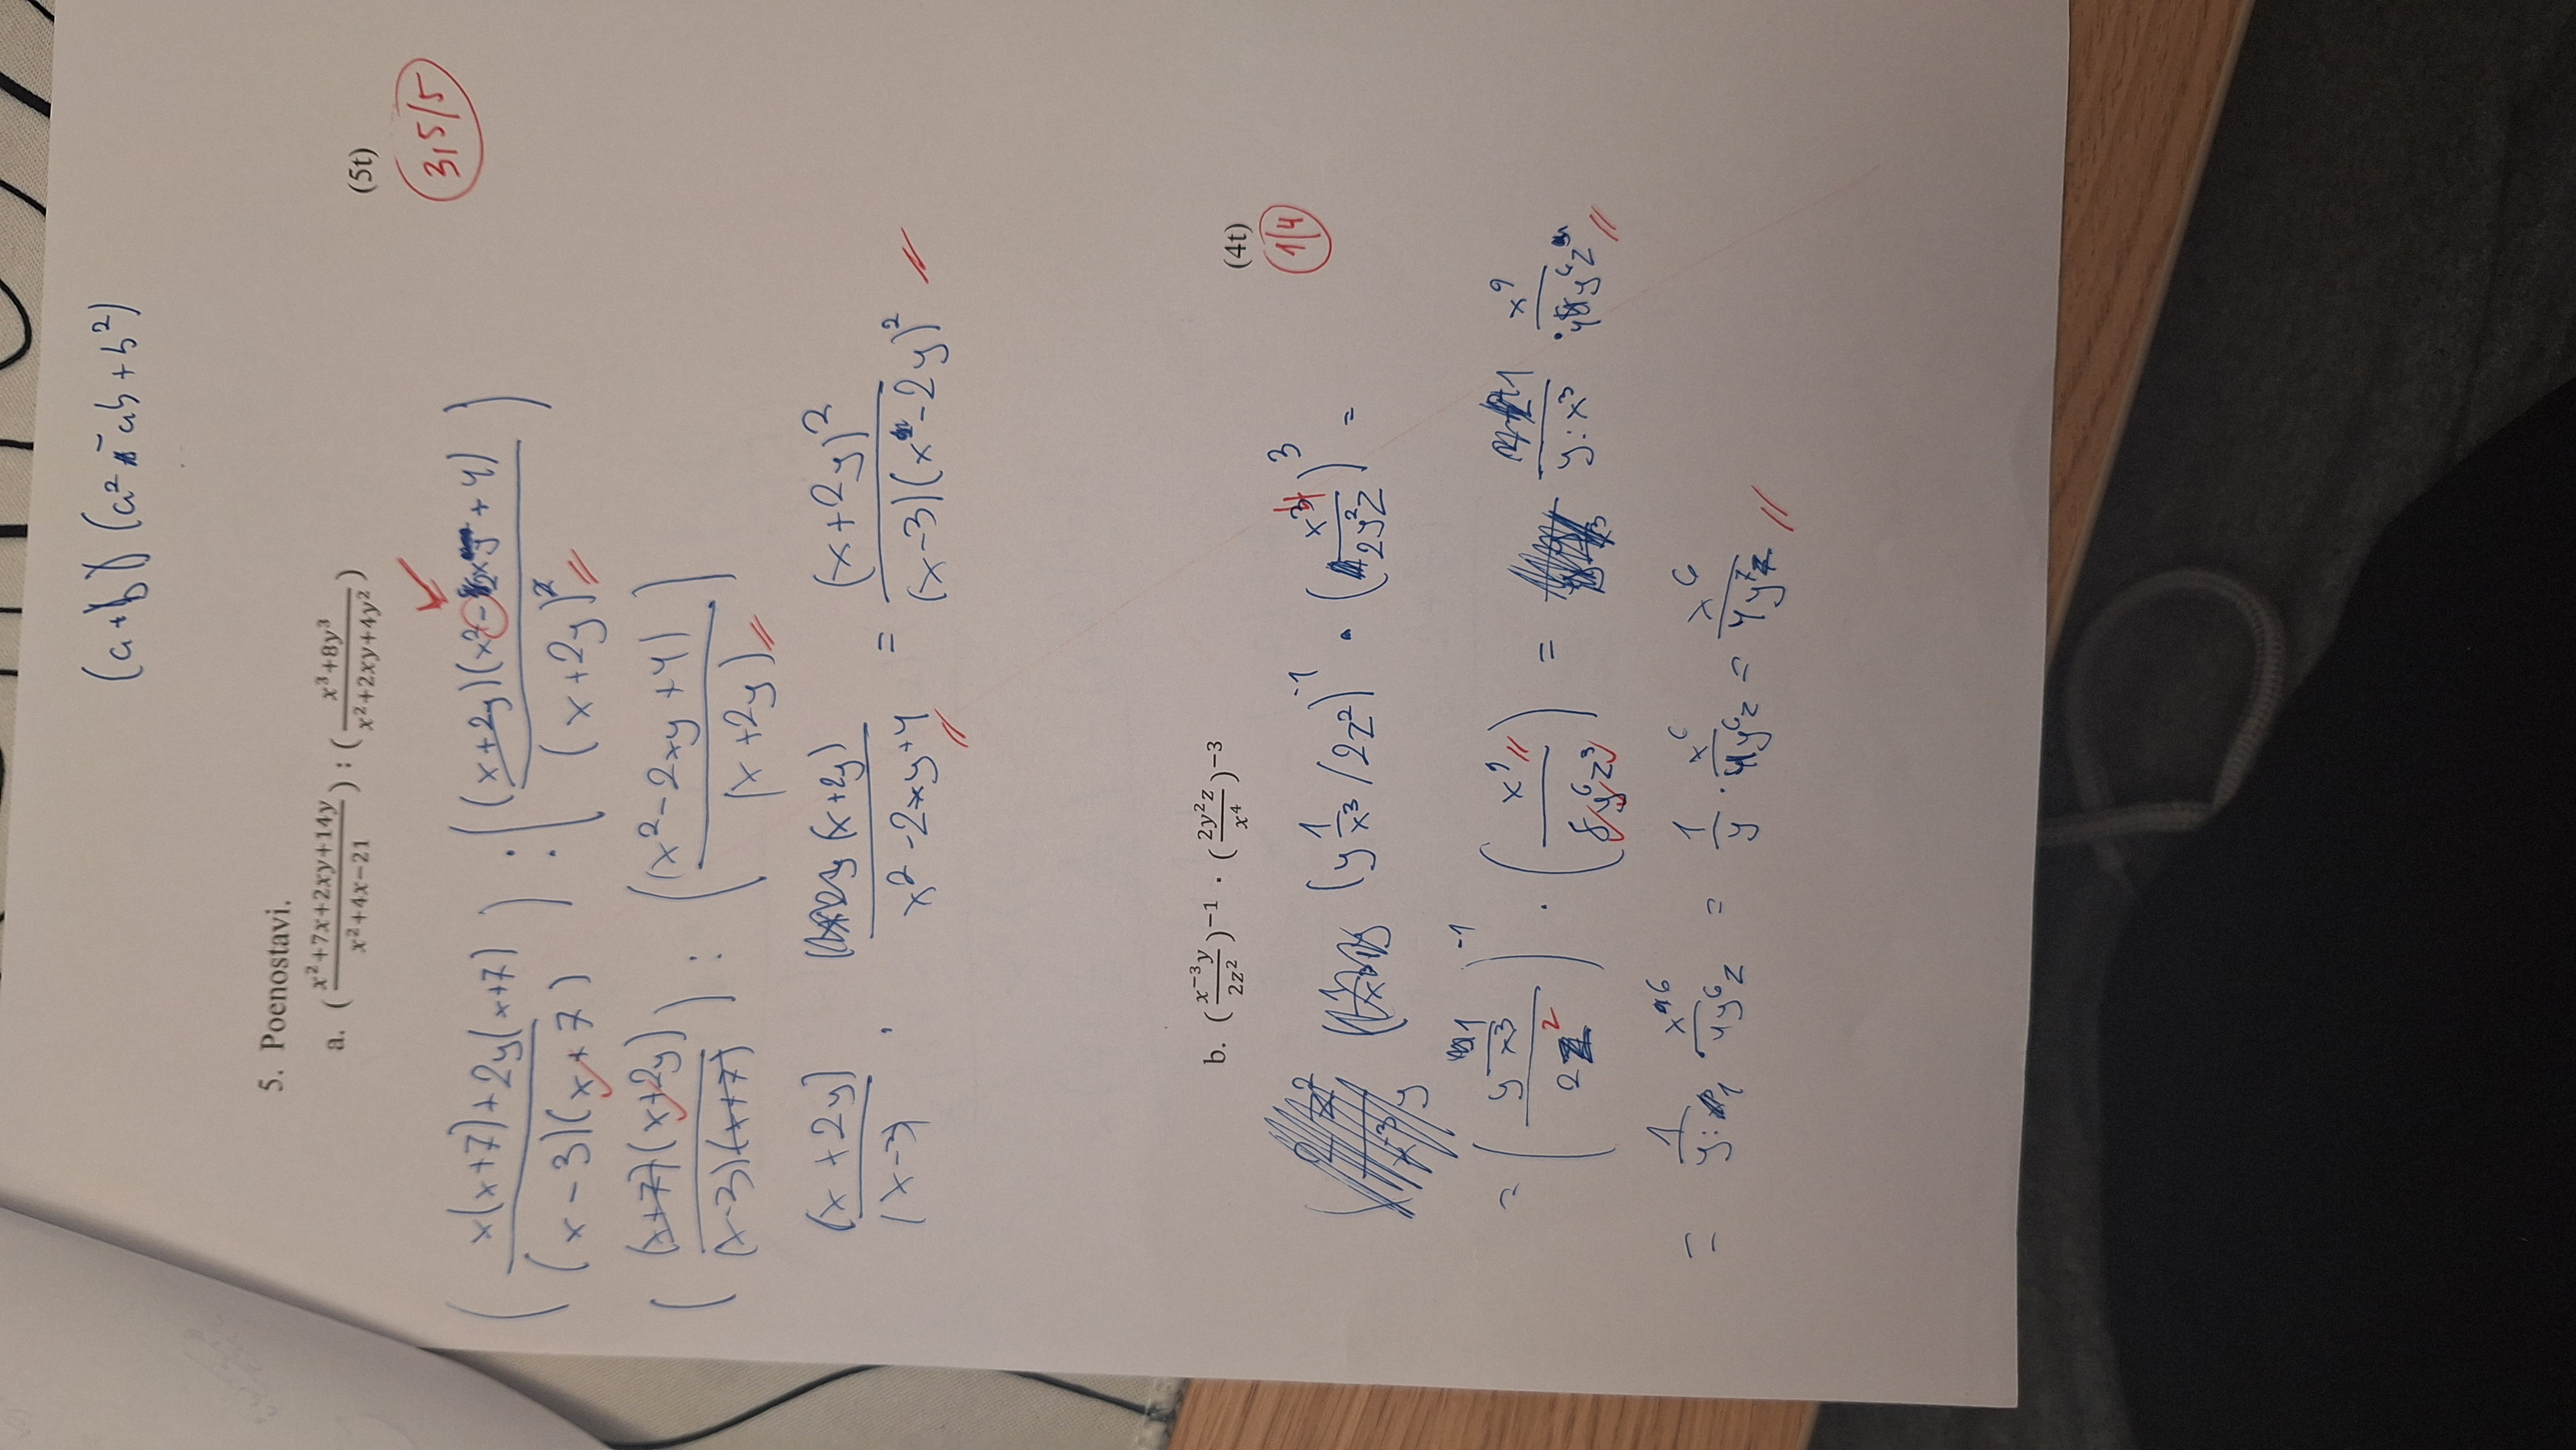 (a+b) (a² - ab + b²)
5. Poenostavi.
a. ( (x²+7x+2xy+14y)/(x²+4x−21) ) : ( (x³+8y³)/(x²+2xy+4y²) )
(5t)
3,5/5
( (x(x+7)+2y(x+7))/((x-3)(x+7)) ) : ( ((x+2y)(x²-2xy+4))/((x+2y)²) )
( ((x+7)(x+2y))/((x-3)(x+7)) ) : ( (x²-2xy+4)/(x+2y) )
(x+2y)/(x-3) · (x+2y)/(x²-2xy+4) = (x+2y)²/((x-3)(x-2y)²)
b. ( (x⁻³y)/(2z²) )⁻¹ · ( (2y²z)/(x⁴) )⁻³
(4t)
1/4
(y 1/x³ / 2z²)⁻¹ · ( x³/(2y²z) )³ =
= ( (y 1/x³)/(2z²) )⁻¹ · ( x⁹/(8y⁶z³) ) = 1/(y:x³) · x⁹/(4y⁶z)
= 1/(y:1) · x⁶/(4y⁶z) = 1/y · x⁶/(4y⁶z) = x⁶/(4y⁷z)